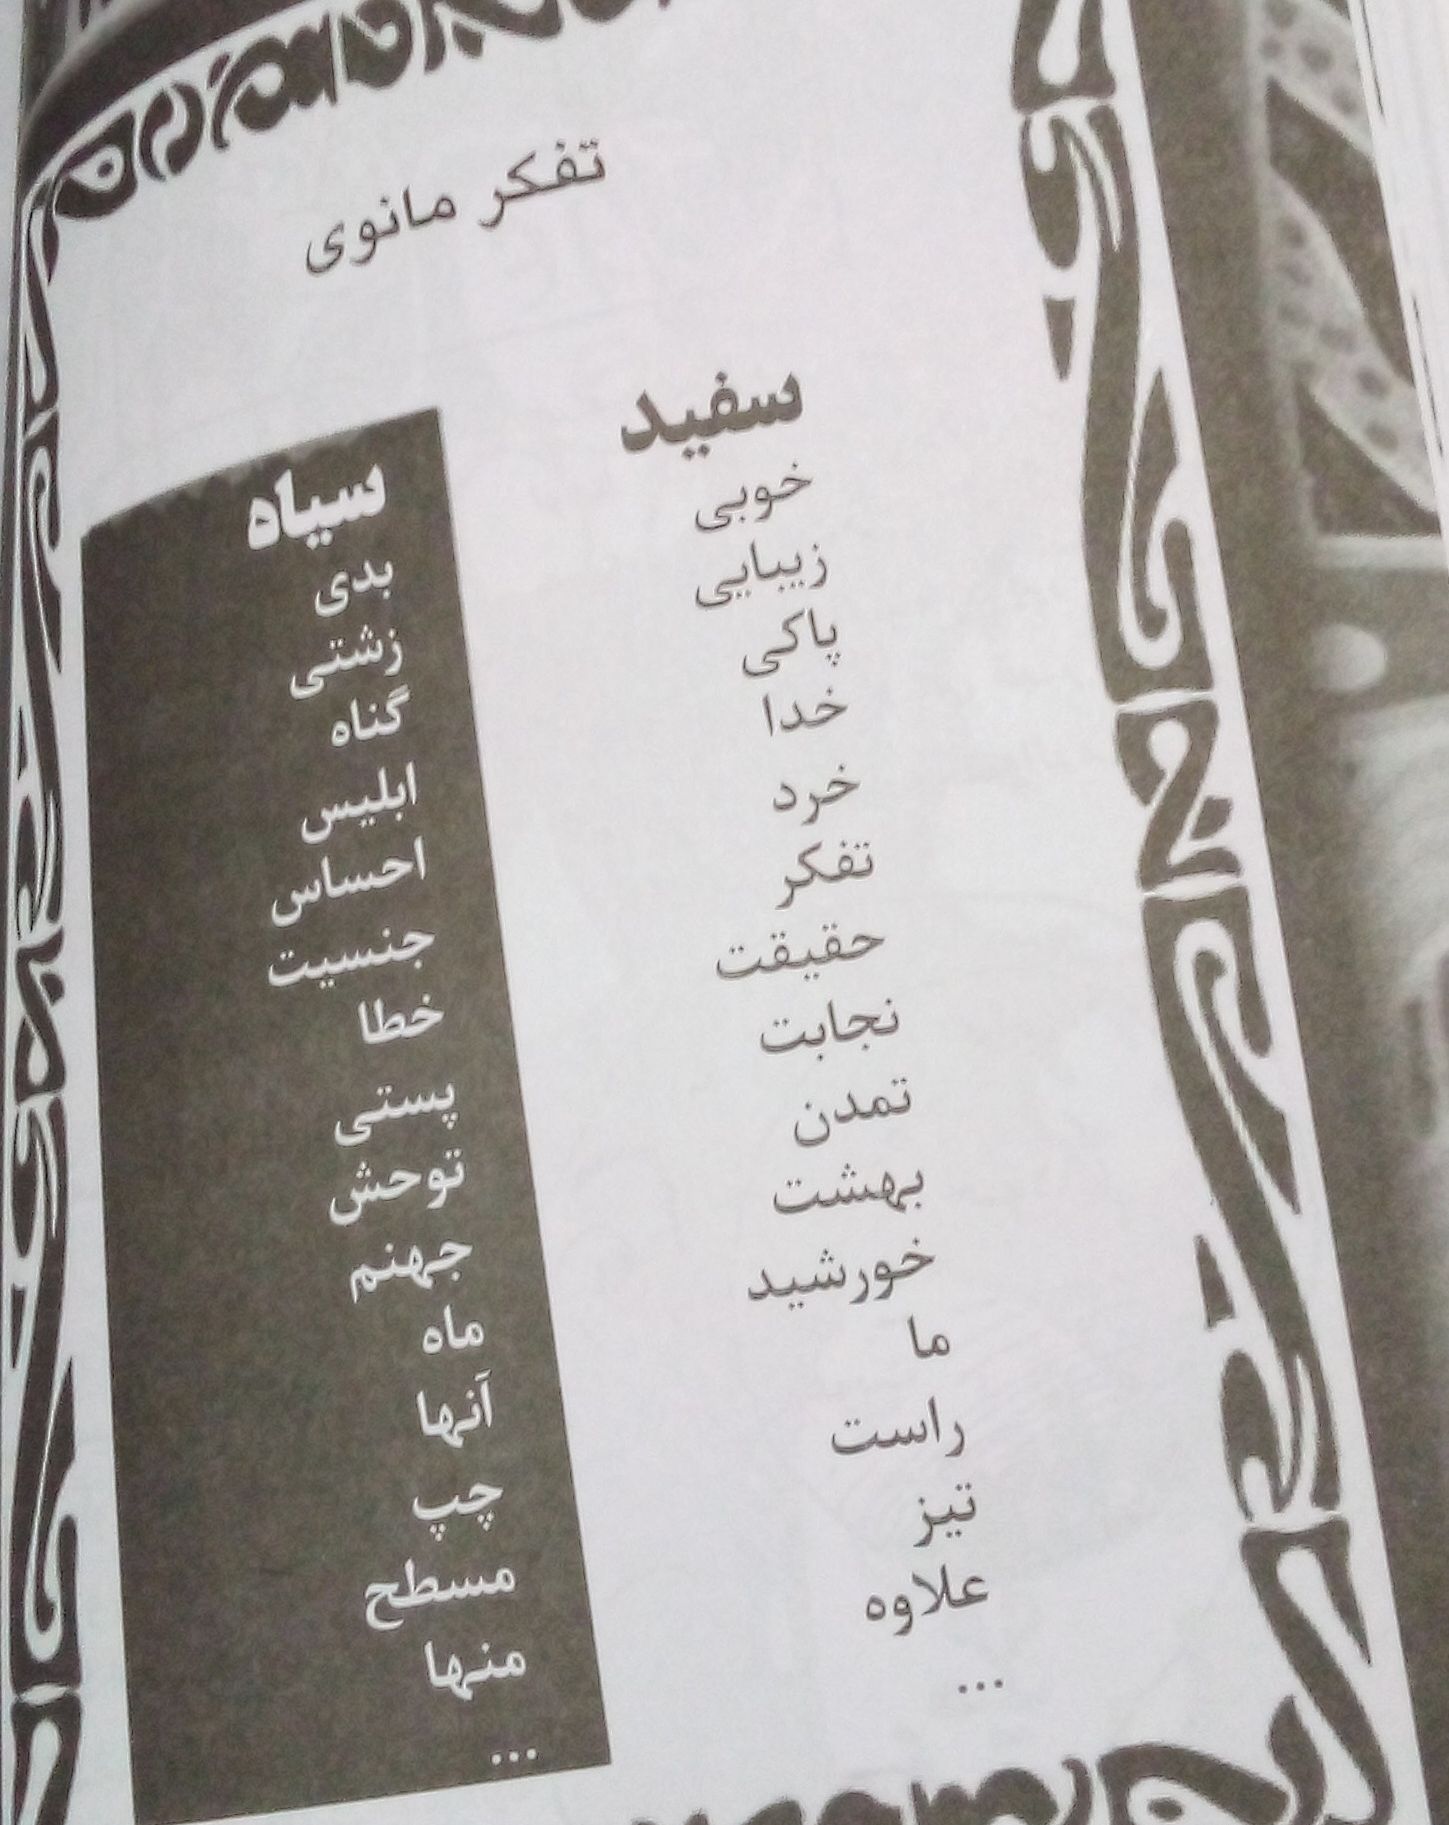 تفکر مانوی
سفید
خوبی
زیبایی
پاکی
خدا
خرد
تفکر
حقیقت
نجابت
تمدن
بهشت
خورشید
ما
راست
تیز
علاوه
...
سیاه
بدی
زشتی
گناه
ابلیس
احساس
جنسیت
خطا
پستی
توحش
جهنم
ماه
آنها
چپ
مسطح
منها
...